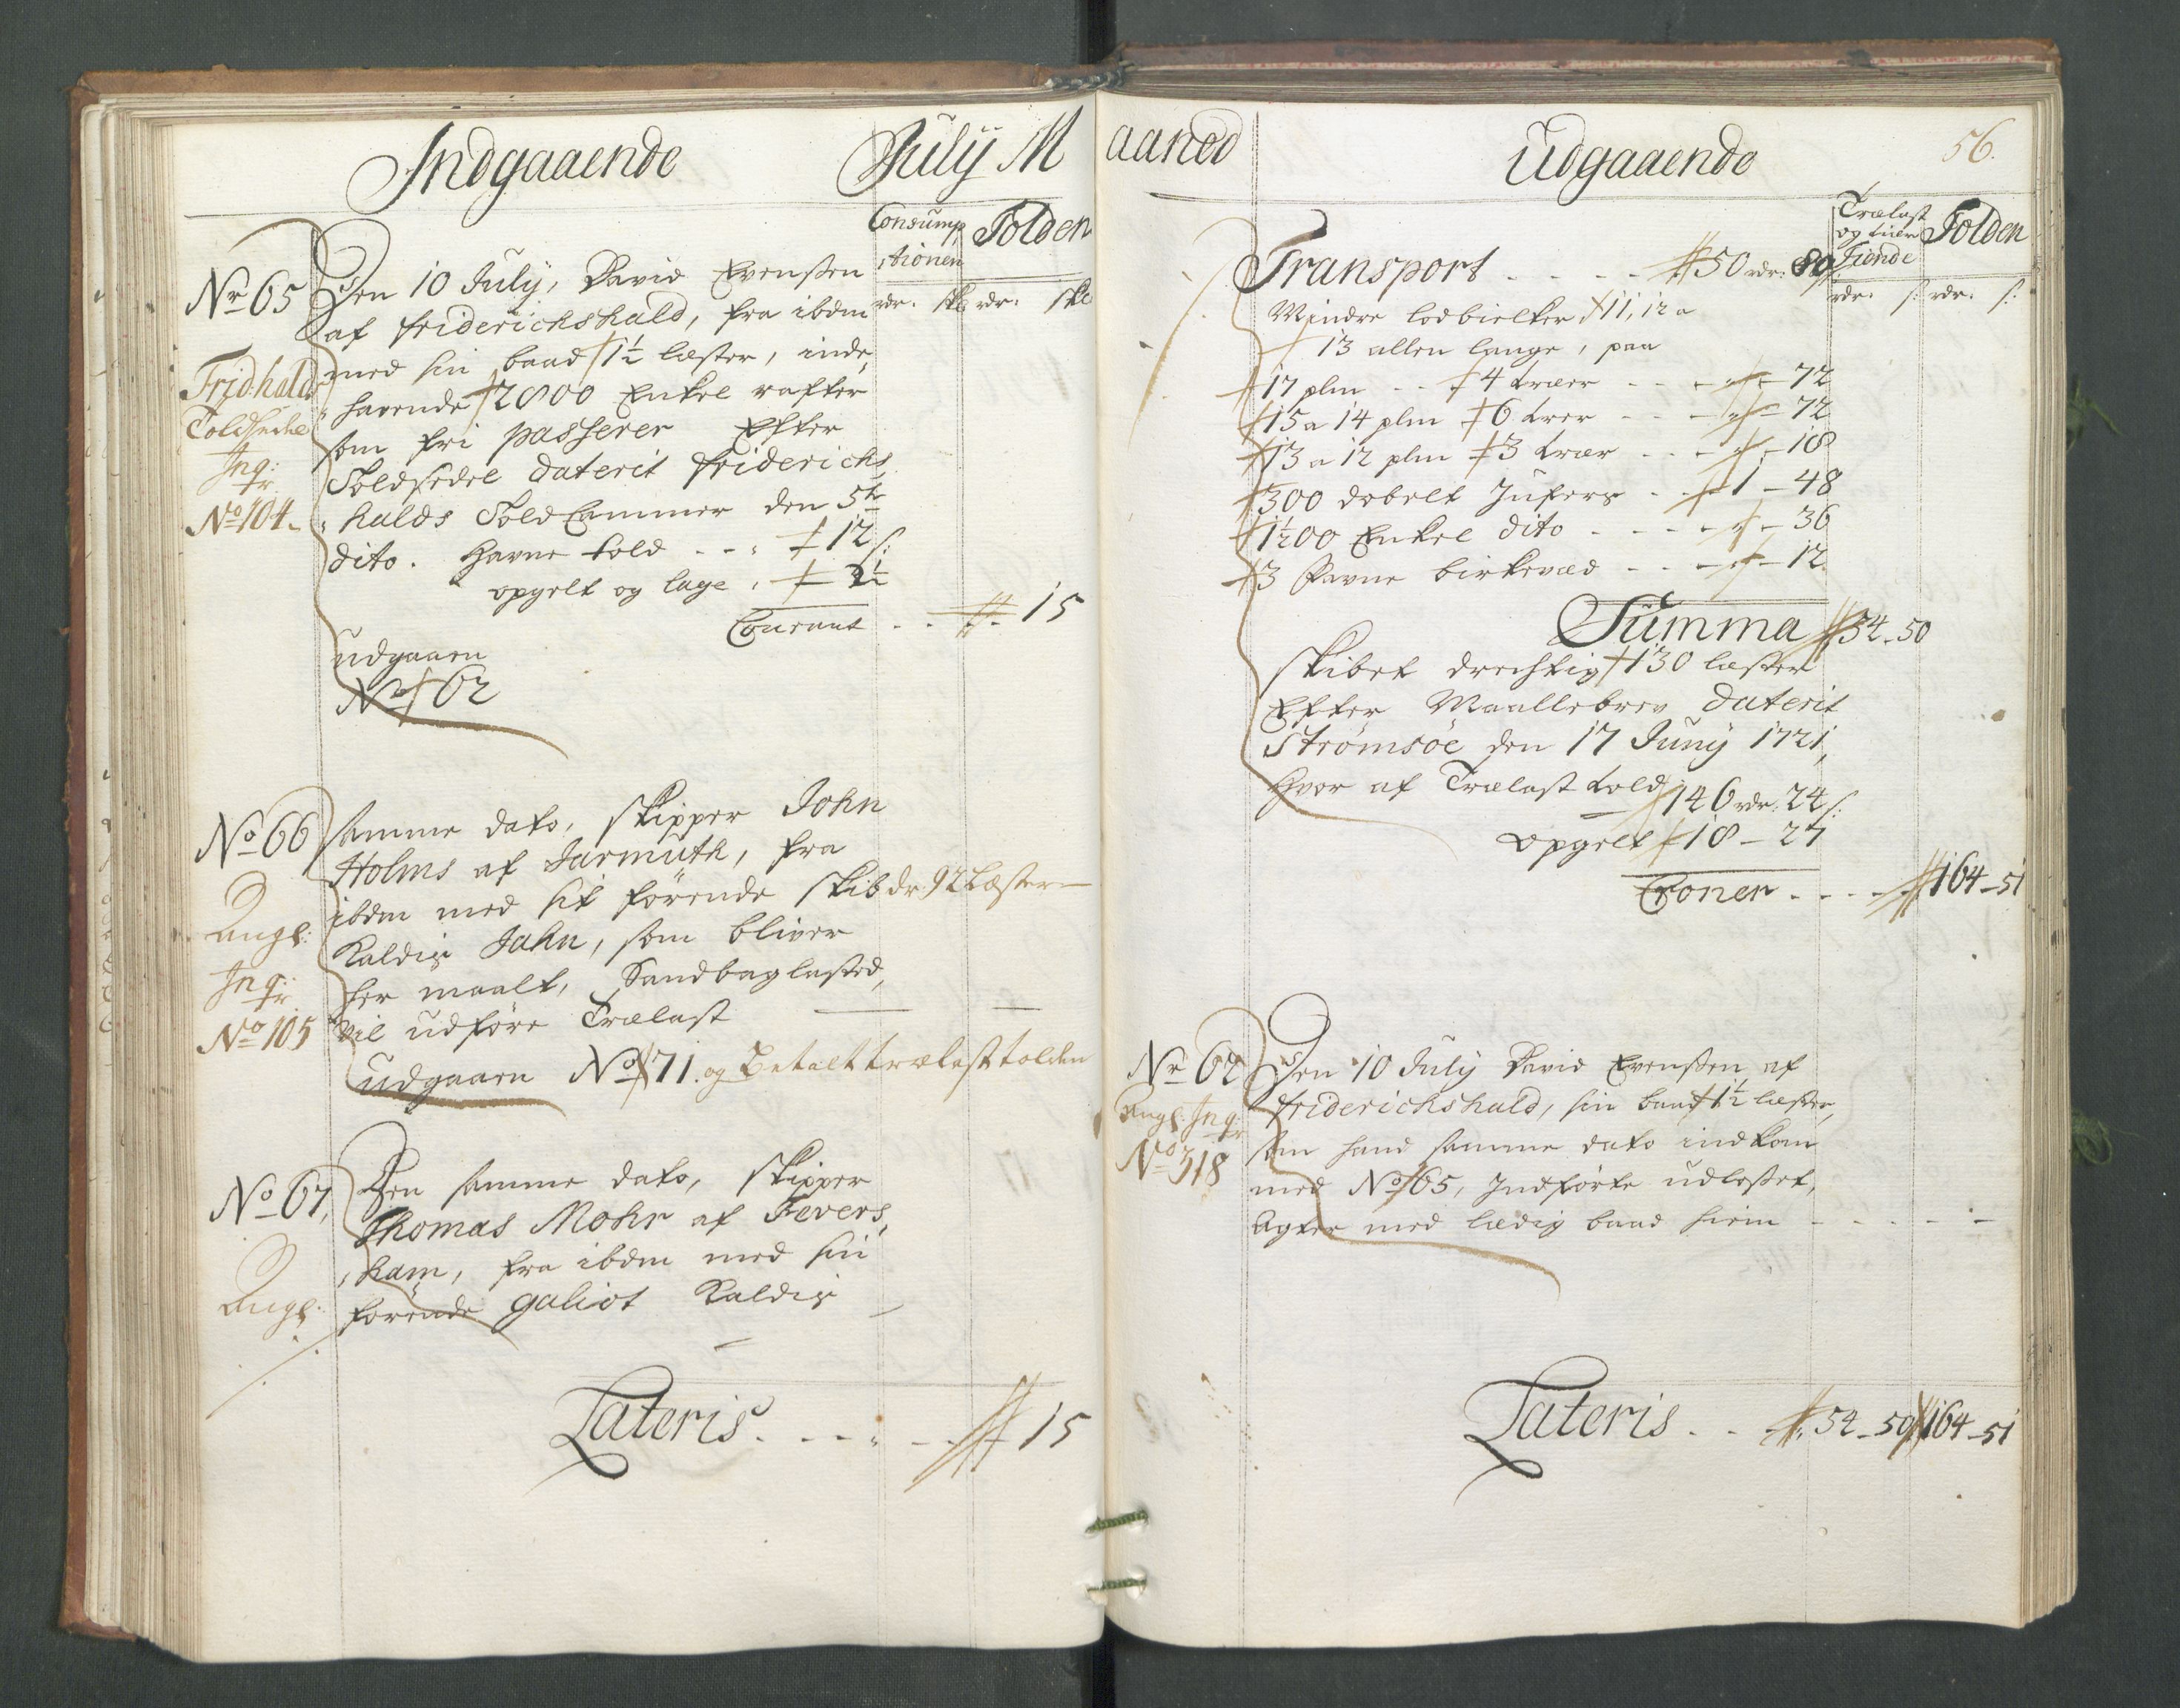 Indgaaende July M
Consump
tionen
Tolden
rdr. sk rdr. sk
No 65
Den 10 July, David Evensen
af friderichshald, fra ibdm
med sin baad 1½ læster, inde
havende 2800 Enkel rafter
som fri passerer Efter
Toldsedel daterit friderichs
halds Told Cammer den 5te
dito. Havne told - - 12 s:
opgelt og lage, 2½
Courant - - 15
udgaaen
No 62
Fridhalds
Toldsedel
Inq:
No 104.
No 66
samme dato, skipper John
Holms af Jarmuth, fra
ibdm med sit förende skib dr. 92 Læster
Kaldis Jahn, som bliver
her maalt, Sandbaglasted,
vil udföre Trælast
udgaaen No 71. og Betalt trælast tolden
Angl:
Inq:
No 105
No 67,
Den samme dato, skipper
Thomas Mohr af Fevers
ham, fra ibdm med sin
förende galiot Kaldis
Angl:
Lateris. - - - 15
aaned Udgaaende 56.
Trælast
og
Tiende
Tolden
rdr. s: rdr. s:
Transport - - - - 50 rdr: 80
Mindre lodbielker 11, 12 a
13 allen lange, paa
17 plm - - 4 trær - - - 72
15 a 14 plm 6 trær - - - 72
13 a 12 plm 3 trær - - - 18
300 dobelt Jufers - - 1 - 48
1½00 Enkel dito - - - - 36
3 Favne birkeved - - - 12
Summa 54 - 50
skibet drechtig 130 læster
Efter Maallebrev daterit
Strömsöe den 17 Juny 1721,
hvor af Trælast told 146 rdr. 24 s:
opgelt 18 - 27
Croner - - - - 164 - 51
No 62
Den 10 July David Evensen af
friderichshald, sin baad 1½ læster,
som hand samme dato indkom
med No 65, Indförte udlosset,
Agter med lædig baad hiem - - - - -
Angl: Inq:
No 318
Lateris - - 54 - 50 164 - 51